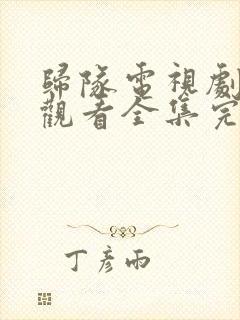 歸隊電視劇
觀看全集完
丁彥雨